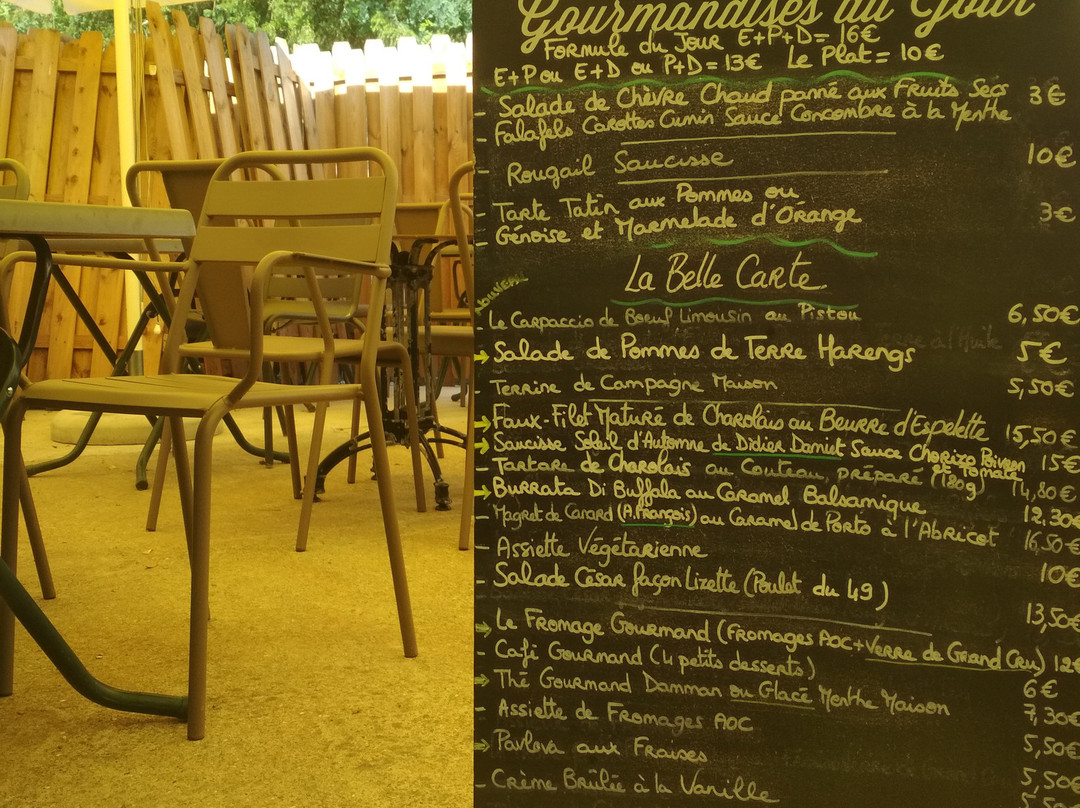 Gourmandises du Jour
Formule du Jour E+P+D = 16€
E+P ou E+D ou P+D = 13€ Le Plat = 10€
- Salade de Chèvre Chaud panné aux Fruits Secs 3€
- Falafels Carottes Cumin Sauce Concombre à la Menthe
- Rougail Saucisse 10€
- Tarte Tatin aux Pommes ou 3€
- Génoise et Marmelade d'Orange
La Belle Carte
- Le Carpaccio de Boeuf Limousin au Pistou 6,50€
→ Salade de Pommes de Terre Harengs 5€
- Terrine de Campagne Maison 5,50€
→ Faux-Filet Maturé de Charolais au Beurre d'Espelette 15,50€
→ Saucisse Soleil d'Automne de Didier Sauce Chorizo Poivron et Tomate 15€
- Tartare de Charolais au Couteau, préparé (180g) 14,80€
→ Burrata Di Buffala au Caramel Balsamique 12,30€
- Magret de Canard (A.François) au Caramel de Porto à l'Abricot 16,50€
- Assiette Végétarienne 10€
- Salade César façon Lizette (Poulet du 49) 13,50€
→ Le Fromage Gourmand (Fromages AOC + Verre de Grand Cru) 12€
- Café Gourmand (4 petits desserts) 6€
→ Thé Gourmand Damman ou Glacé Menthe Maison 7,30€
- Assiette de Fromages AOC 5,50€
→ Pavlova aux Fraises 5,50€
- Crème Brûlée à la Vanille